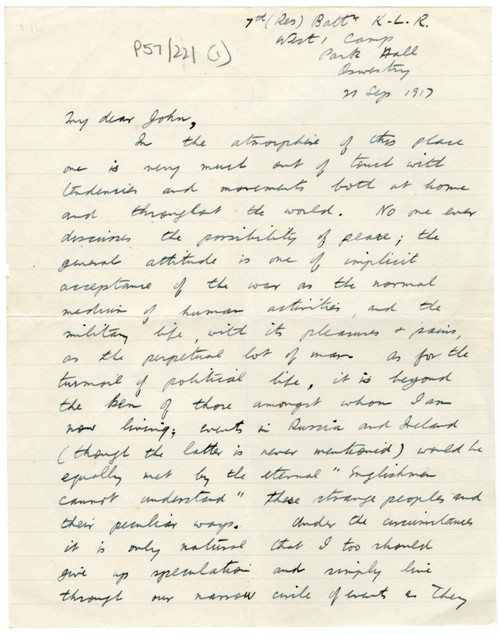 7th (Res) Battn K-L-R.
West 1 Camp
Park Hall
Oswestry
21 Sep 1917
P57/221 (1)
My dear John,
In the atmosphere of this place
one is very much out of touch with
tendencies and movements both at home
and throughout the world. No one ever
discusses the possibility of peace; the
general attitude is one of implicit
acceptance of the war as the normal
medium of human activities, and the
military life, with its pleasures + pains,
as the perpetual lot of man. As for the
turmoil of political life, it is beyond
the ken of those amongst whom I am
now living; events in Russia and Ireland
(though the latter is never mentioned) would be
equally met by the eternal "Englishmen
cannot understand" these strange peoples and
their peculiar ways. Under the circumstances
it is only natural that I too should
give up speculation and simply live
through our narrow circle of events as They